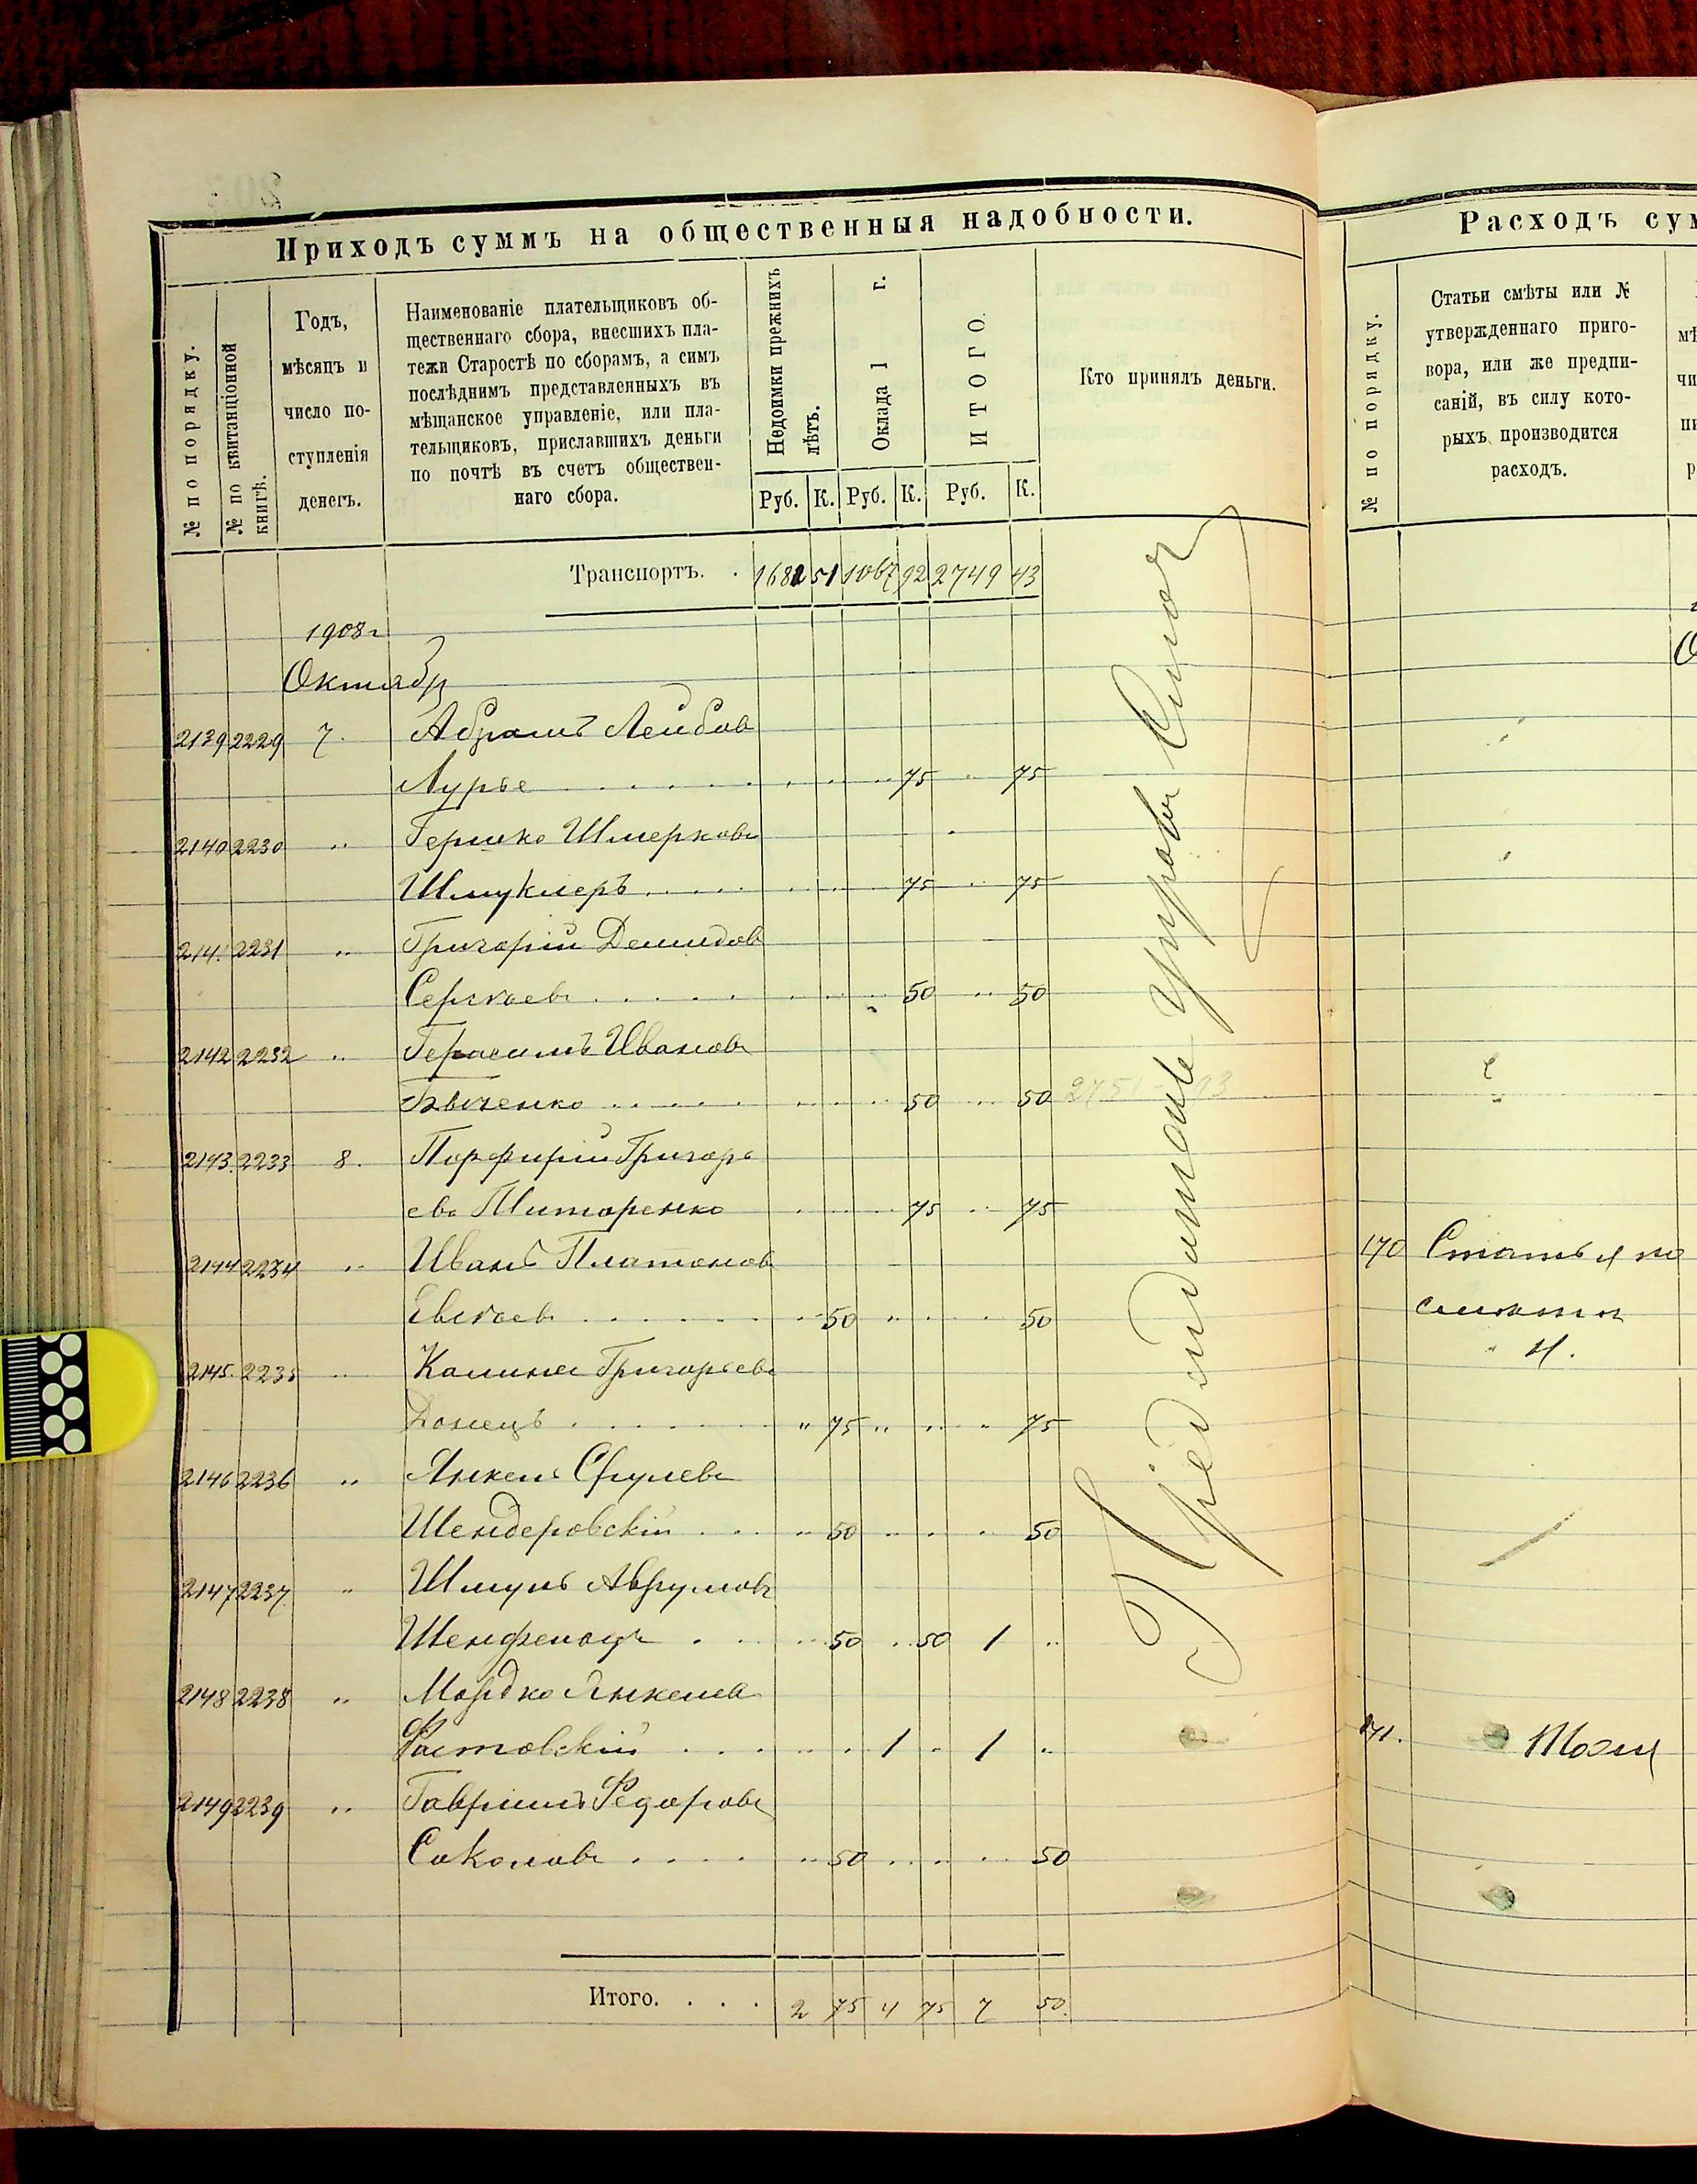 Приходъ суммъ на общественныя надобности.
№ по порядку.
№ по квитанціонной книгѣ.
Годъ,
мѣсяцъ и
число по-
ступленія
денегъ.
Наименованіе плательщиковъ об-
щественнаго сбора, внесшихъ пла-
тежи Старостѣ по сборамъ, а симъ
послѣднимъ представленныхъ въ
мѣщанское управленіе, или пла-
тельщиковъ, приславшихъ деньги
по почтѣ въ счетъ обществен-
наго сбора.
Недоимки прежнихъ лѣтъ.
Оклада 1 г.
ИТОГО.
Кто принялъ деньги.
Руб. К. Руб. К. Руб. К.
Транспортъ. . 1682 51 1067 92 2749 43
1908 г
Октябр
2139 2229 7. Абрамъ Лейбов
Лурье 75 75
2140 2230 " Гершко Шмерковъ
Шмуклеръ 75 75
214. 2231 " Григорій Демидов
Сергѣевъ 50 50
2142 2232 " Герасимъ Ивановъ
Быченко 50 50
2143. 2233 8. Порфирій Григорь
евъ Питоренко 75 75
2144 2234 " Иванъ Платонов
Евсѣевъ 50 " 50
2145. 2235 " Калина Григорьевъ
Донецъ " 75 " " 75
2146 2236 " Янкель Срулевъ
Шендеровскій " 50 50
2147 2237. " Шмуль Аврумовъ
50 50 1 "
2148 2238 " Мордко Янкелев
Фастовскій 1 1 "
2149 2239 " Гавріилъ Федоровъ
Соколовъ " 50 50
Итого. . . . 2 75 4 75 7 50.
2751 93
Расходъ сум
№ по порядку.
Статьи смѣты или №
утвержденнаго приго-
вора, или же предпи-
саній, въ силу кото-
рыхъ производится
расходъ.
170 Статья по
4.
171.